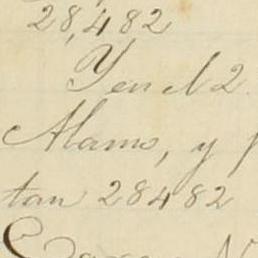 28,482
Y en el 2
Alamo, y
tan 28482